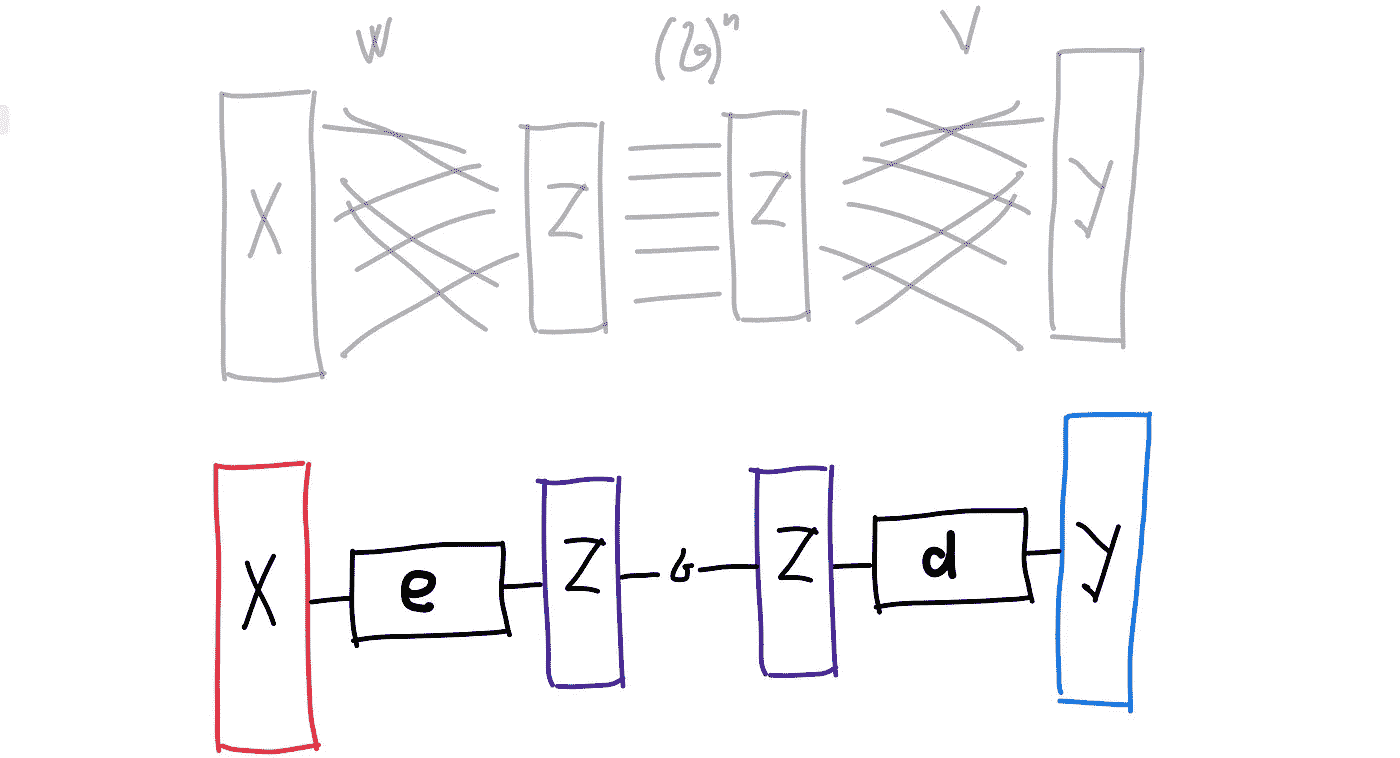 W (σ)ⁿ V
X Z Z y
X e Z σ Z d y